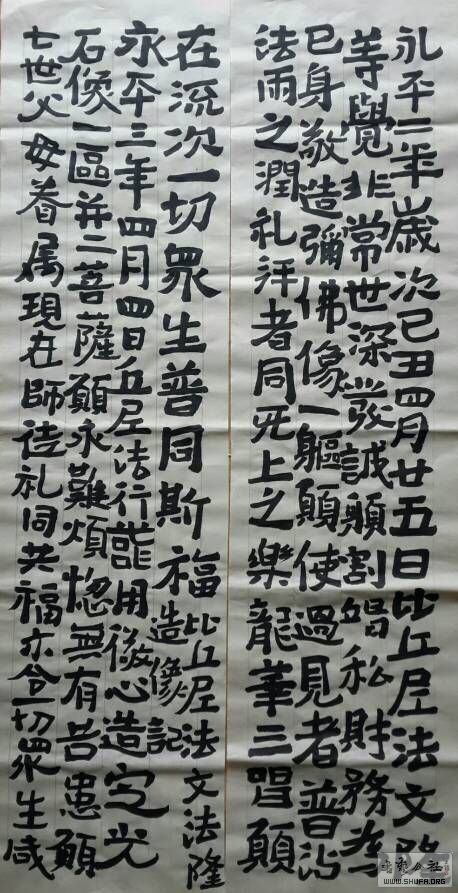 永平二年歲次己丑四月廿五日比丘尼法文隆
等覺非常世深發誠願割竭私財務為
己身敬造彌佛像一軀願使過見者普沾
法雨之潤礼拜者同无上之樂龍華三唱願
在流次一切眾生普同斯福比丘尼法文法隆
造像記
永平三年四月四日丘尼法行用微心造定光
石像一區并二菩薩願永難煩惚無有苦患願
七世父母眷属現在師徒礼同共福亦令一切眾生咸
书艺公社
WWW.SHUFA.ORG